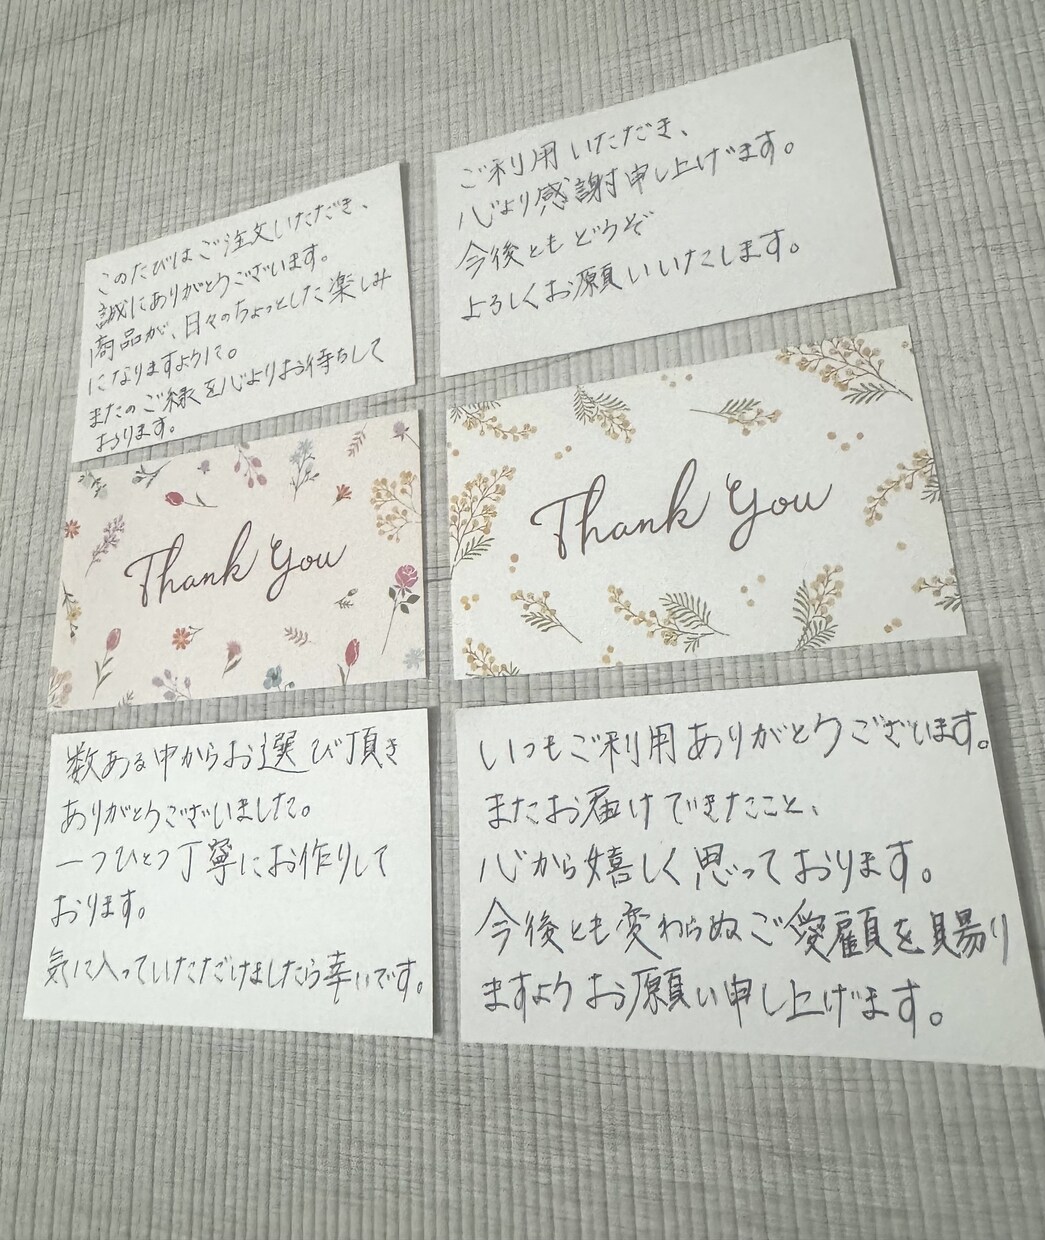 このたびはご注文いただき、
誠にありがとうございます。
商品が、日々のちょっとした楽しみ
になりますように。
またのご縁を心よりお待ちして
おります。
ご利用いただき、
心より感謝申し上げます。
今後ともどうぞ
よろしくお願いいたします。
Thank You
Thank You
数ある中からお選び頂き
ありがとうございました。
一つひとつ丁寧にお作りして
おります。
気に入っていただけましたら幸いです。
いつもご利用ありがとうございます。
またお届けできたこと、
心から嬉しく思っております。
今後とも変わらぬご愛顧を賜り
ますようお願い申し上げます。